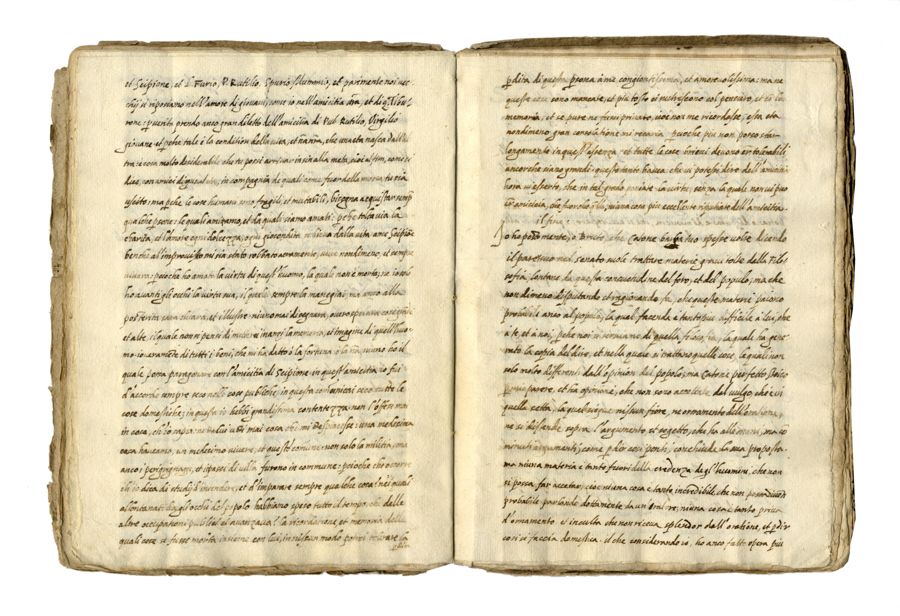 et Scipione, et L Furio, P Rutilio, Spurio Mummio, et parimente noi vec
chij ci riposiamo nell'amore di giovani, come io nell'amicitia vra, et di Q Tube
rone: prendo anco gran diletto dell'amicitia di Pub Rutilio, Virgilio
giovane et tale è la condition della vita, et che una età nasca dall'al
tra: è cosa molto desiderabile che tu possi arrivare insin alla meta, cioè al fim, come si
dice, con in compagnia de quali come fuor della mossa tu sia
uscito: ma perche le cose humane sono fragili, et mutabili, bisogna acquistar semp
qualche persone: le quali amiamo, et da quali siamo amati: tolta via la
charità, et l'amore ogni dolcezza, ogni giocondità dalla vita. a me Scipione
benche all'improviso mi sia stato robbato acramente, vive nondimeno, et sempre
viverà: perche ho amato la virtù di quest'huomo, la qual non è morta: ne io solo
ho avanti gli occhi la virtù sua, il quale sempre la maneggiai, ma anco alla
posterità sarà chiara, et illustre niuno mai di cose grandi
et alte, il quale non si pensi di la memoria, et imagine di quell'huo
mo. io veramente di tutti i beni, che mi ha datto ò la fortuna, ò la niuno ho il
quale possa paragonare con l'amicitia di Scipione in quest'amicitia io fui
d'accordo sempre seco nelle cose publiche; in questa seco tutte le
cose domestiche; in questa io hebbi grandissima contentezza: non l'offesi mai
in cosa, ch'io sapia: ne da lui udi mai cosa che mi una medesima
casa havevamo, un medesimo vivere, et quest'commune: non solo la militia, ma
anco i peregrinaggi, et i spassi di villa furono in commune: perche che occorre
ch'io dica di studij d'intendere, et d'imparare sempre qualche cosa? nei quali
allontanati da gli occhi del popolo habbiamo speso tutto il tempo, che delle
altre occupationi publiche ci avanzava? la ricordatione, et memoria delle
quali cose se fusse morta insieme con lui, in nissun modo potrei la
pdita di questa persona à me congiontissima, et amorevolissima: ma ne
queste cose sono mancate, et piu tosto si nutriscono col pensiero, et cò la
memoria, et se pure ne fussi privato, cioè non me ne ricordasse, essa età
nondimeno gran consolatione mi recaria perche piu non posso star
longamente in quest'essenza et tutte le cose brievi devono tolerabili
ancorche siano grandi: queste tanto haveva che vi potessi dire dell'amicitia
hora vi esorto, che in tal grado poniate la virtù, senza la quale non vi può
amicitia, che fuor di lei, niuna cosa piu eccellente riputiate dell'amicitia.
il fine.
Io ho o Bruto che Catone tuo spesse volte dicendo
il parer suo nel senato suole trattare materie gravi tolte della Filo
sofia, lontane da questa consuetudine del foro, et del popolo, ma che
nondimeno disputando et ragionando fà, che queste materie paiono
probabili anco al popolo; la qual facenda è tanto piu difficile à lui, che
à te, et à noi, perche noi si serviamo di quella filosofia, la quale ha gene
rato la copia del dire, et nella quale si trattano quelle cose, le quali non
solo molto differenti dall'opinion del popolo. ma Catone perfetto Stoico
parere, et ha opinioni, che non sono accettate dal vulgo, che è in
quella setta, la qual segue nissun fiore, ne ornamento dell'oratione,
ne si distende sopra l'argomento et soggetto, che ha alle mani, ma co
minuti argumenti, come p dir con ponti, conchiude la sua proposta.
ma niuna materia è tanto fuori della credenza de gl'huomini, che non
si possa far accettar, cioè niuna cosa è tanto incredibile, che non possa divétr
probabile parlando dottamente niuna cosa è tanto priva
d'ornamento et inculta che non riceva splendor dall'oratione, et p dir
cosi si faccia domestica. il che considerando io, ho anco fatto opera piu